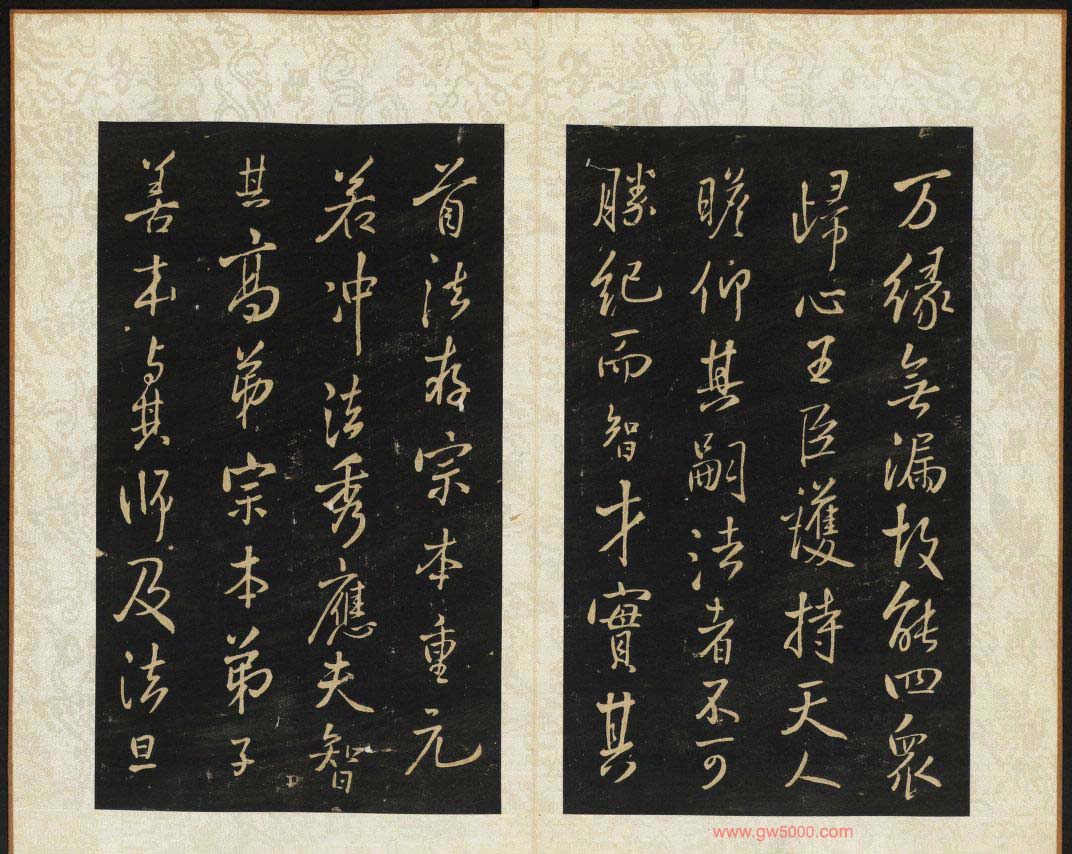 万緣無漏故能四眾
歸心王臣護持天人
瞻仰其嗣法者不可
勝紀而智才實其
首法存宗本重元
若冲法秀應夫智
其高弟宗本弟子
善本与其师及法
www.gw5000.com